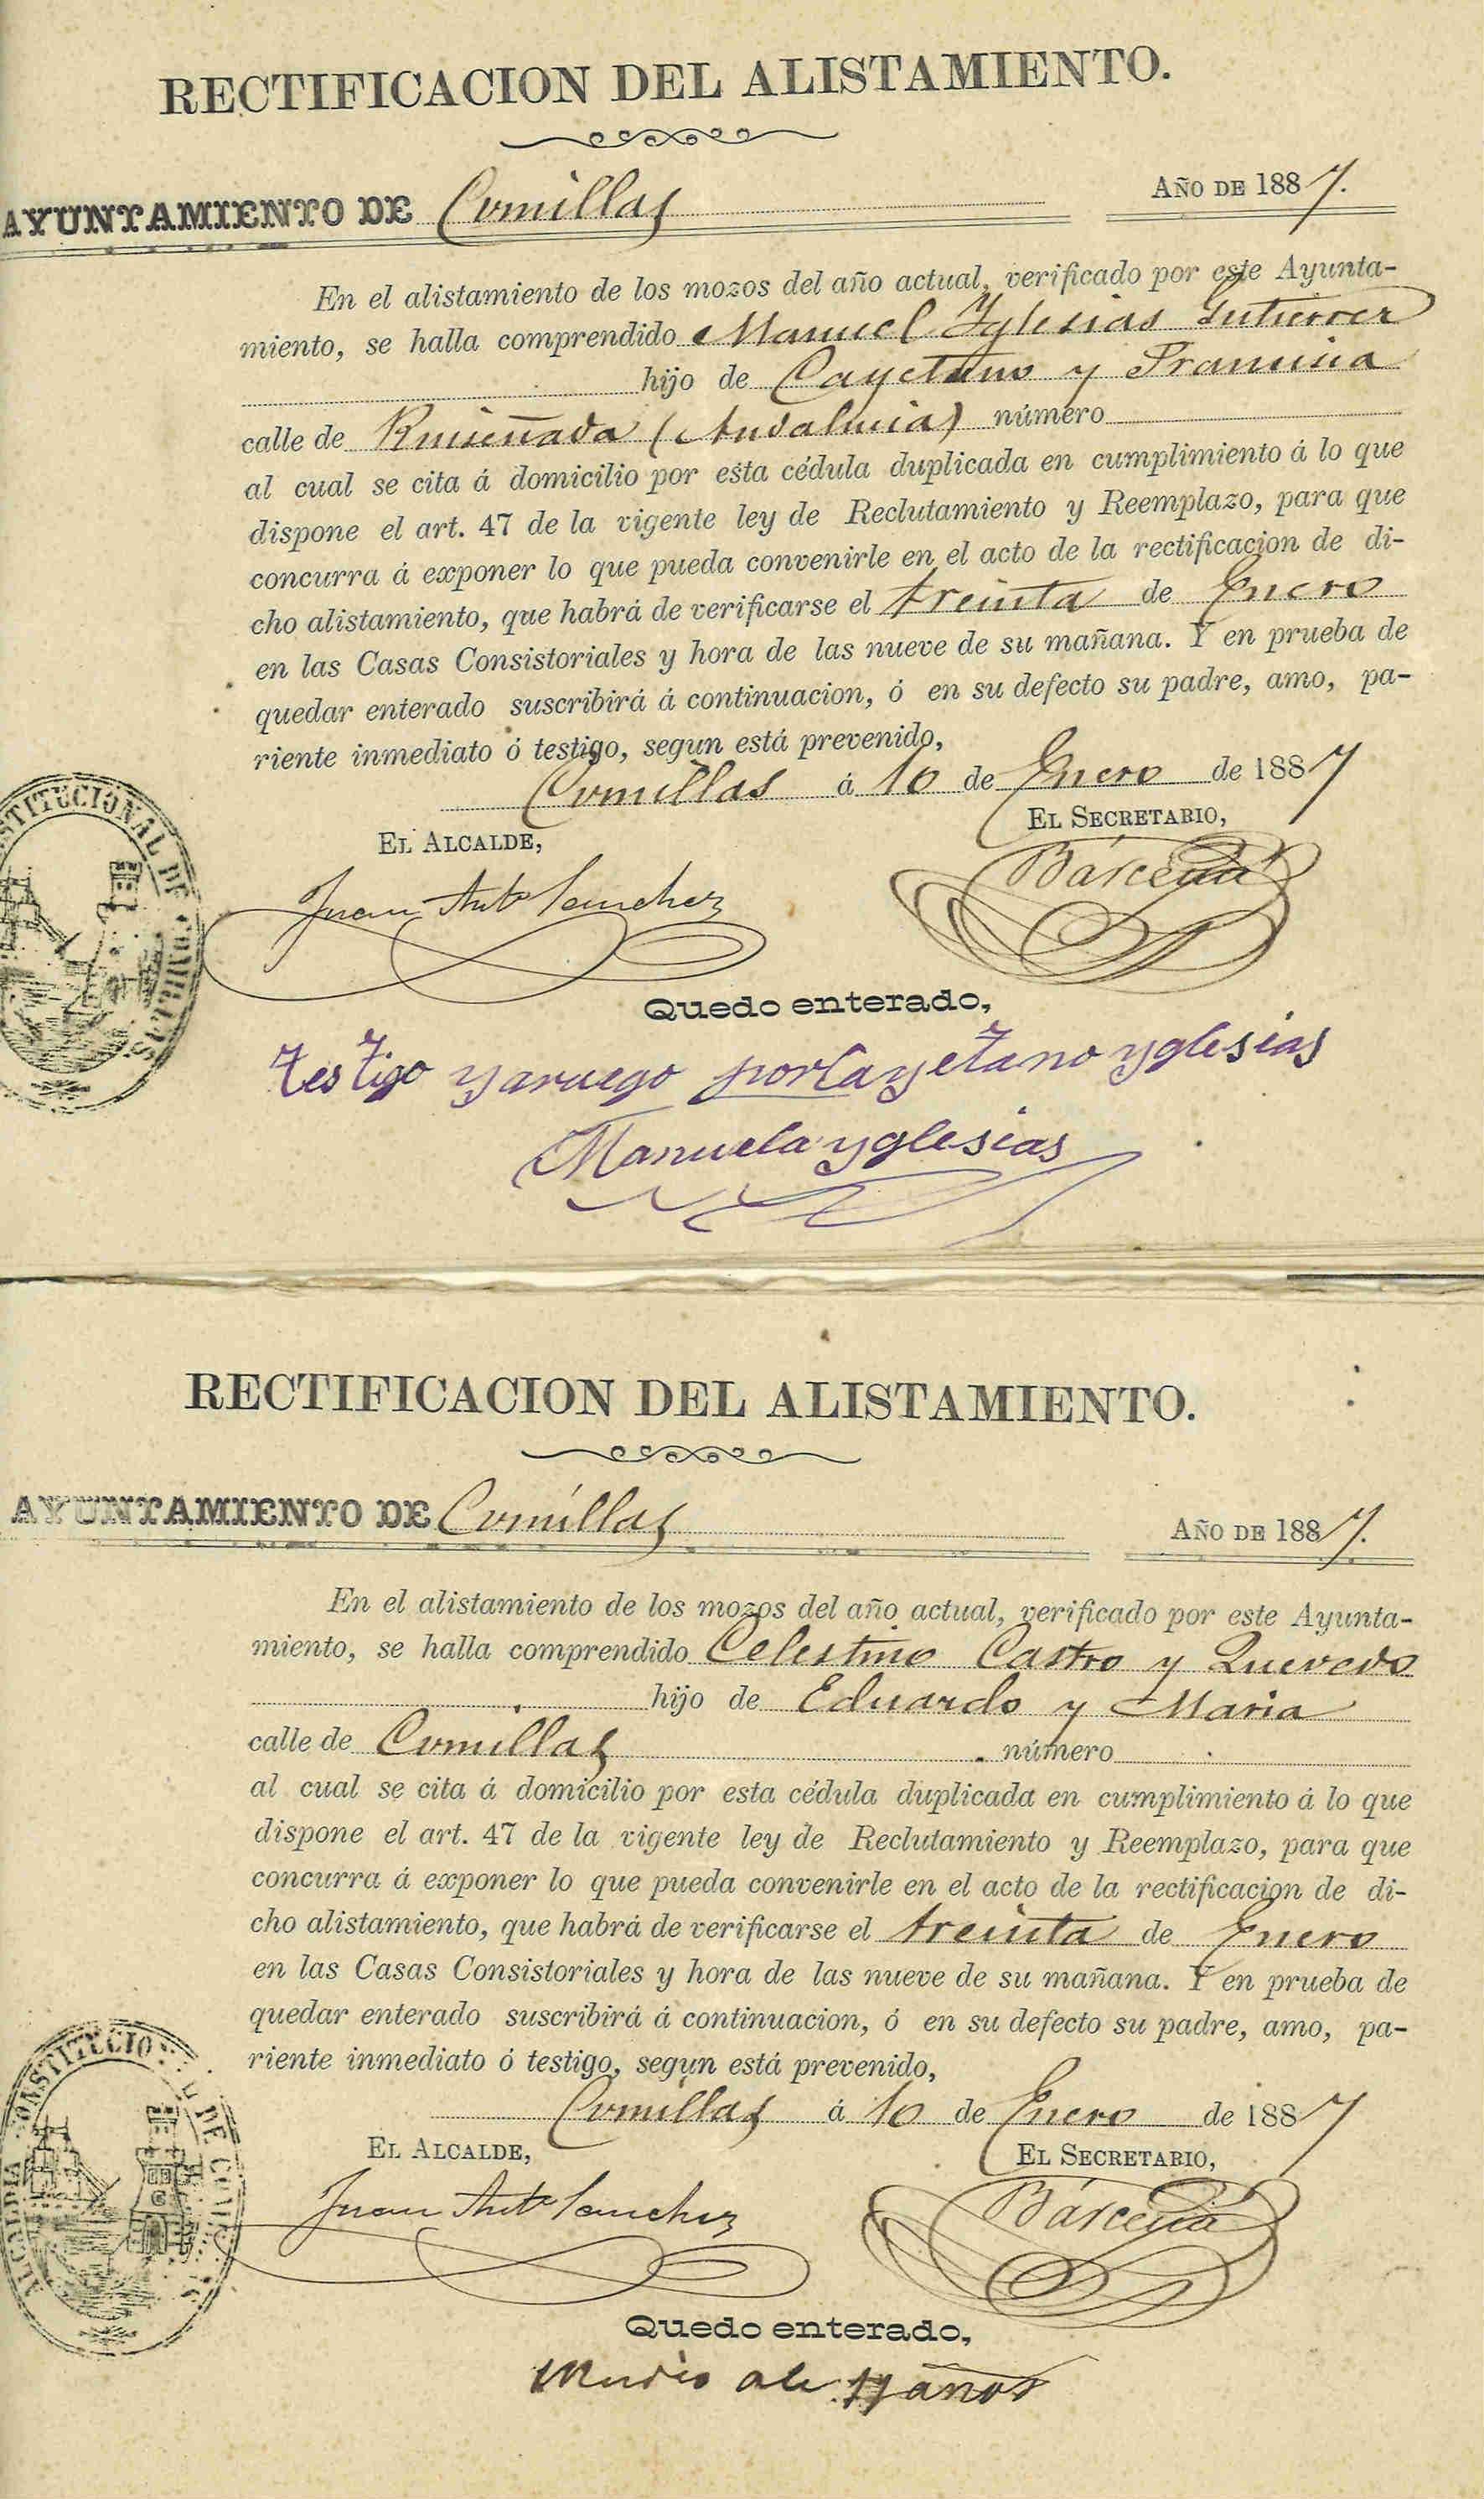 RECTIFICACION DEL ALISTAMIENTO.
AYUNTAMIENTO DE Comillas AÑO DE 1887.
En el alistamiento de los mozos del año actual, verificado por este Ayunta-
miento, se halla comprendido Manuel Yglesias Gutierrez
hijo de Cayetano y Francisca
calle de Ruiseñada (Andalucia) número
al cual se cita á domicilio por esta cédula duplicada en cumplimiento á lo que
dispone el art. 47 de la vigente ley de Reclutamiento y Reemplazo, para que
concurra á exponer lo que pueda convenirle en el acto de la rectificacion de di-
cho alistamiento, que habrá de verificarse el treinta de Enero
en las Casas Consistoriales y hora de las nueve de su mañana. Y en prueba de
quedar enterado suscribirá á continuacion, ó en su defecto su padre, amo, pa-
riente inmediato ó testigo, segun está prevenido,
Comillas á 10 de Enero de 1887
EL ALCALDE, EL SECRETARIO,
Juan Antº Sanchez Bárcena
STITUCIONAL DE COMILLAS
Quedo enterado,
testigo y aruego por Cayetano yglesias
Manuela yglesias
RECTIFICACION DEL ALISTAMIENTO.
AYUNTAMIENTO DE Comillas AÑO DE 1887.
En el alistamiento de los mozos del año actual, verificado por este Ayunta-
miento, se halla comprendido Celestino Castro y Quevedo
hijo de Eduardo y Maria
calle de Comillas número
al cual se cita á domicilio por esta cédula duplicada en cumplimiento á lo que
dispone el art. 47 de la vigente ley de Reclutamiento y Reemplazo, para que
concurra á exponer lo que pueda convenirle en el acto de la rectificacion de di-
cho alistamiento, que habrá de verificarse el treinta de Enero
en las Casas Consistoriales y hora de las nueve de su mañana. Y en prueba de
quedar enterado suscribirá á continuacion, ó en su defecto su padre, amo, pa-
riente inmediato ó testigo, segun está prevenido,
Comillas á 10 de Enero de 1887
EL ALCALDE, EL SECRETARIO,
Juan Antº Sanchez Bárcena
ALCALDIA CONSTITUCIO L DE COM
Quedo enterado,
Murio de años